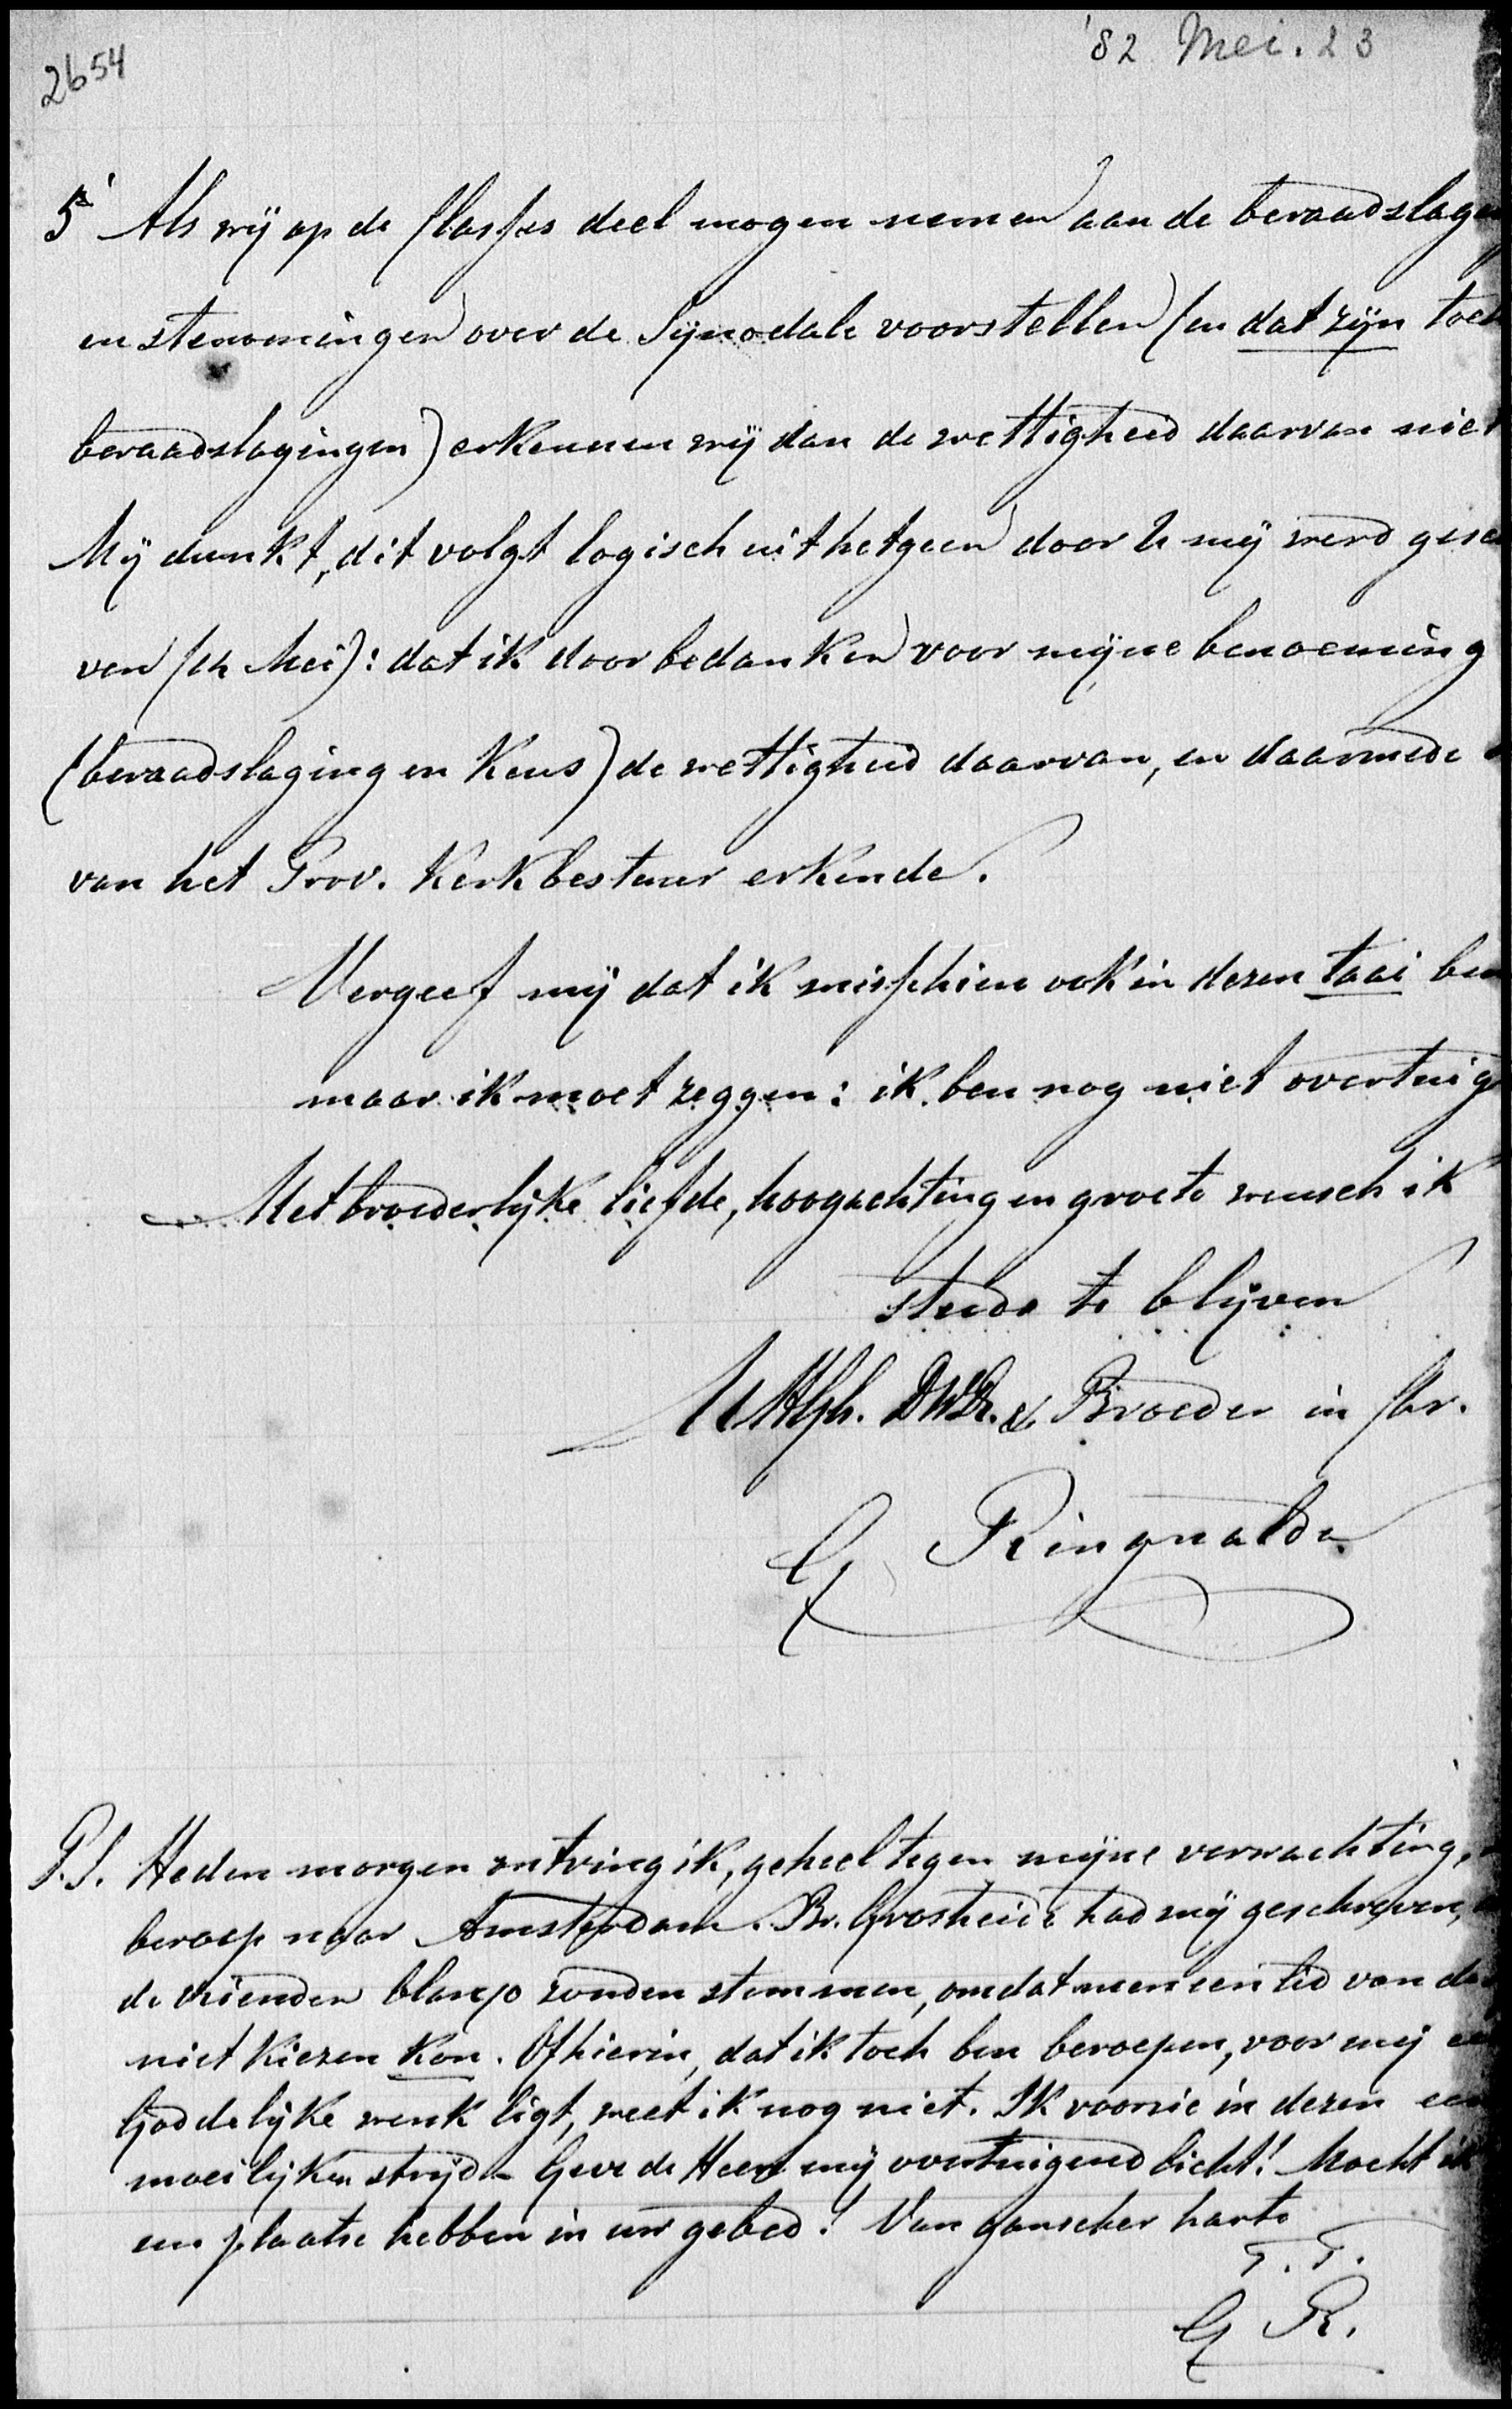 2654
'82 Mei. 23
5° Als wij op de Classes deel mogen nemen aan de beraadslagen
en stemmingen over de Synodale voorstellen (en dat zijn toch
beraadslagingen) erkennen wij dan de wettigheid daarvan niet
Mij dunkt, dit volgt logisch uit hetgeen door U mij werd gesc
ven (12 Mei): dat ik door bedanken voor mijne benoeming
(beraadslaging en Keus) de wettigheid daarvan, en daarmede
van het Prov. Kerkbestuur erkende.
Vergeef mij dat ik misschien ook in dezen taai ben
maar ik moet zeggen: ik ben nog niet overtuigd
Met broederlijke liefde, hoogachting en groete wensch ik
steeds te blijven
UHgh. DWDr. & Broeder in Chr.
G Ringnalda
P.S. Heden morgen ontving ik, geheel tegen mijne verwachting,
beroep naar Amsterdam. Br. Grosheide had mij geschreven,
de vrienden blanco zouden stemmen, omdat men een lid van de
niet kiezen kon. Of hierin, dat ik toch ben beroepen, voor mij een
Goddelijke wenk ligt, weet ik nog niet. Ik voorzie in dezen een
moeilijken strijd - Geve de Heer mij overtuigend licht! Mocht ik
een plaatse hebben in uw gebed! Van ganscher harte
T.T.
G R.